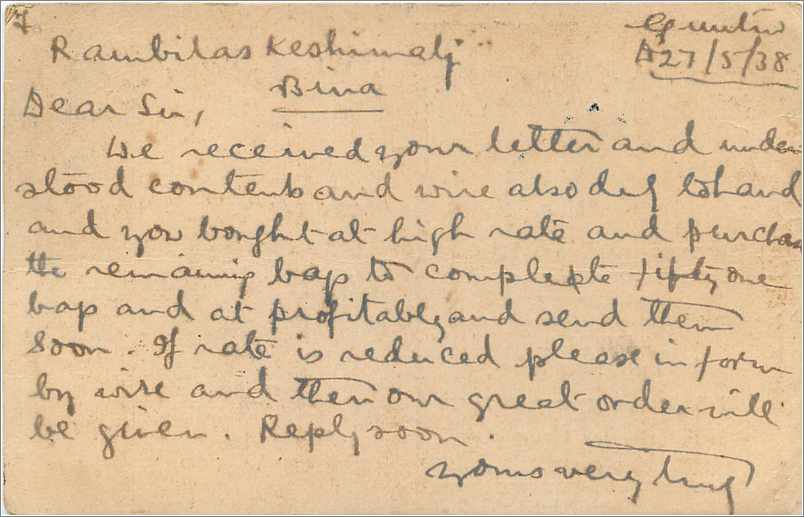 Guntur
D 27/5/38
Rambilas Keshimalji
Bina
Dear Sir,
We received your letter and under
stood contents and wire also to hand
and you bought at high rate and purchase
the remaining bags to complete fifty one
bags and at profitably and send them
soon. If rate is reduced please inform
by wire and then our great order will
be given. Reply soon.
yours very truly